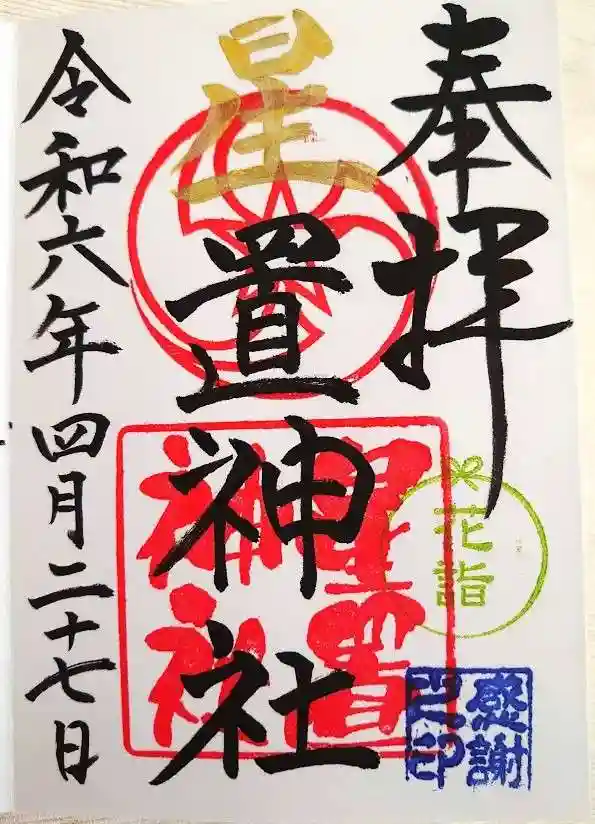 奉拝
星置神社
令和六年四月二十七日
星置
神社
花詣
感謝
之印